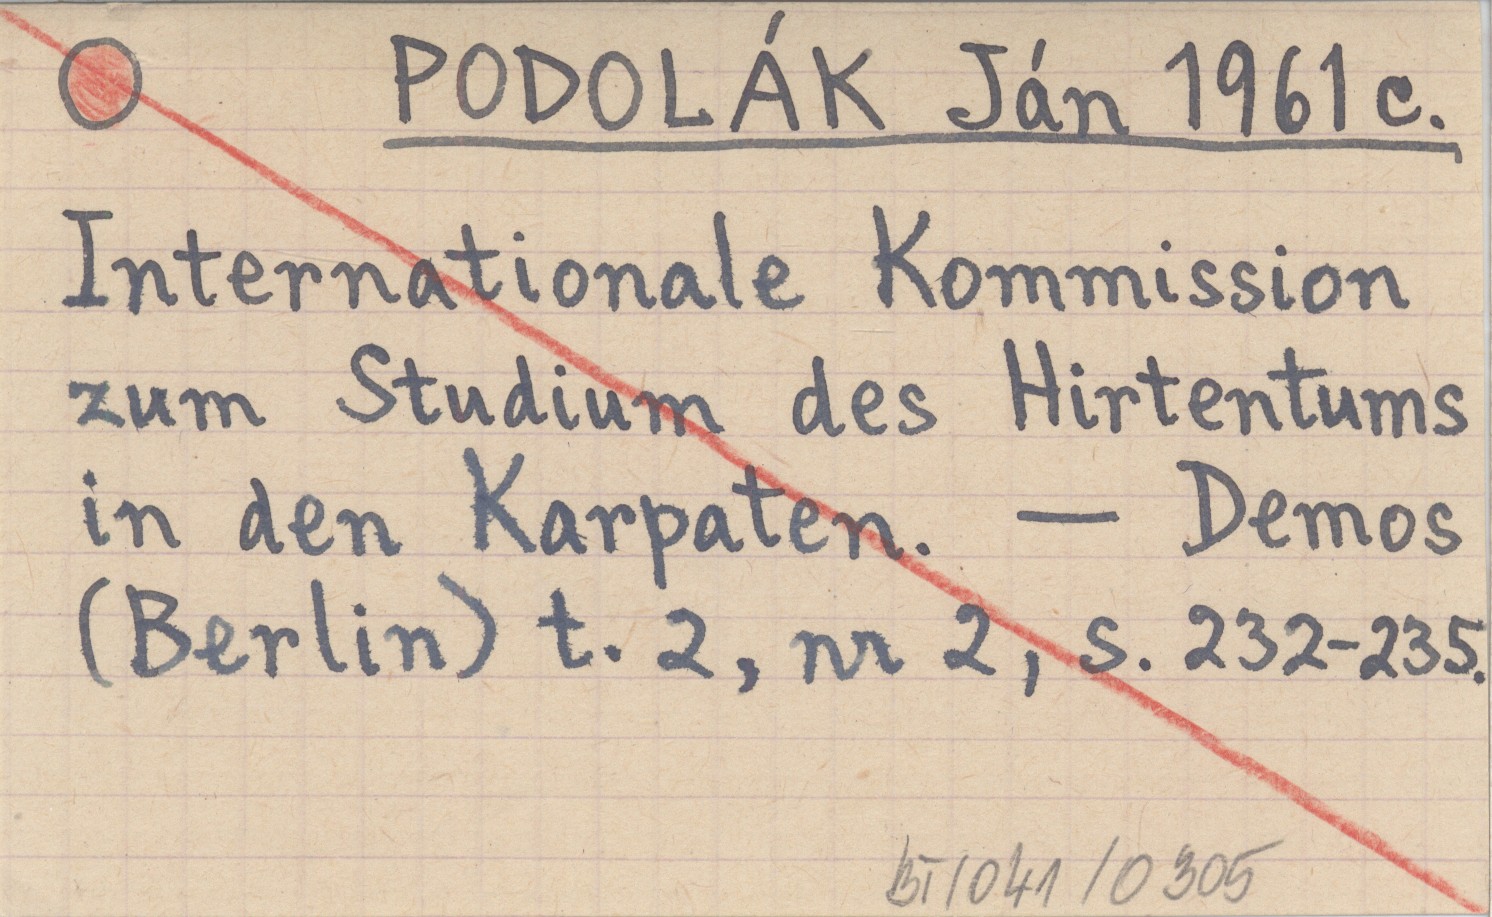 PODOLÁK Ján 1961 c.
Internationale Kommission
zum Studium des Hirtentums
in den Karpaten. — Demos
(Berlin) t. 2, nr 2, s. 232-235.
BI/041/0305